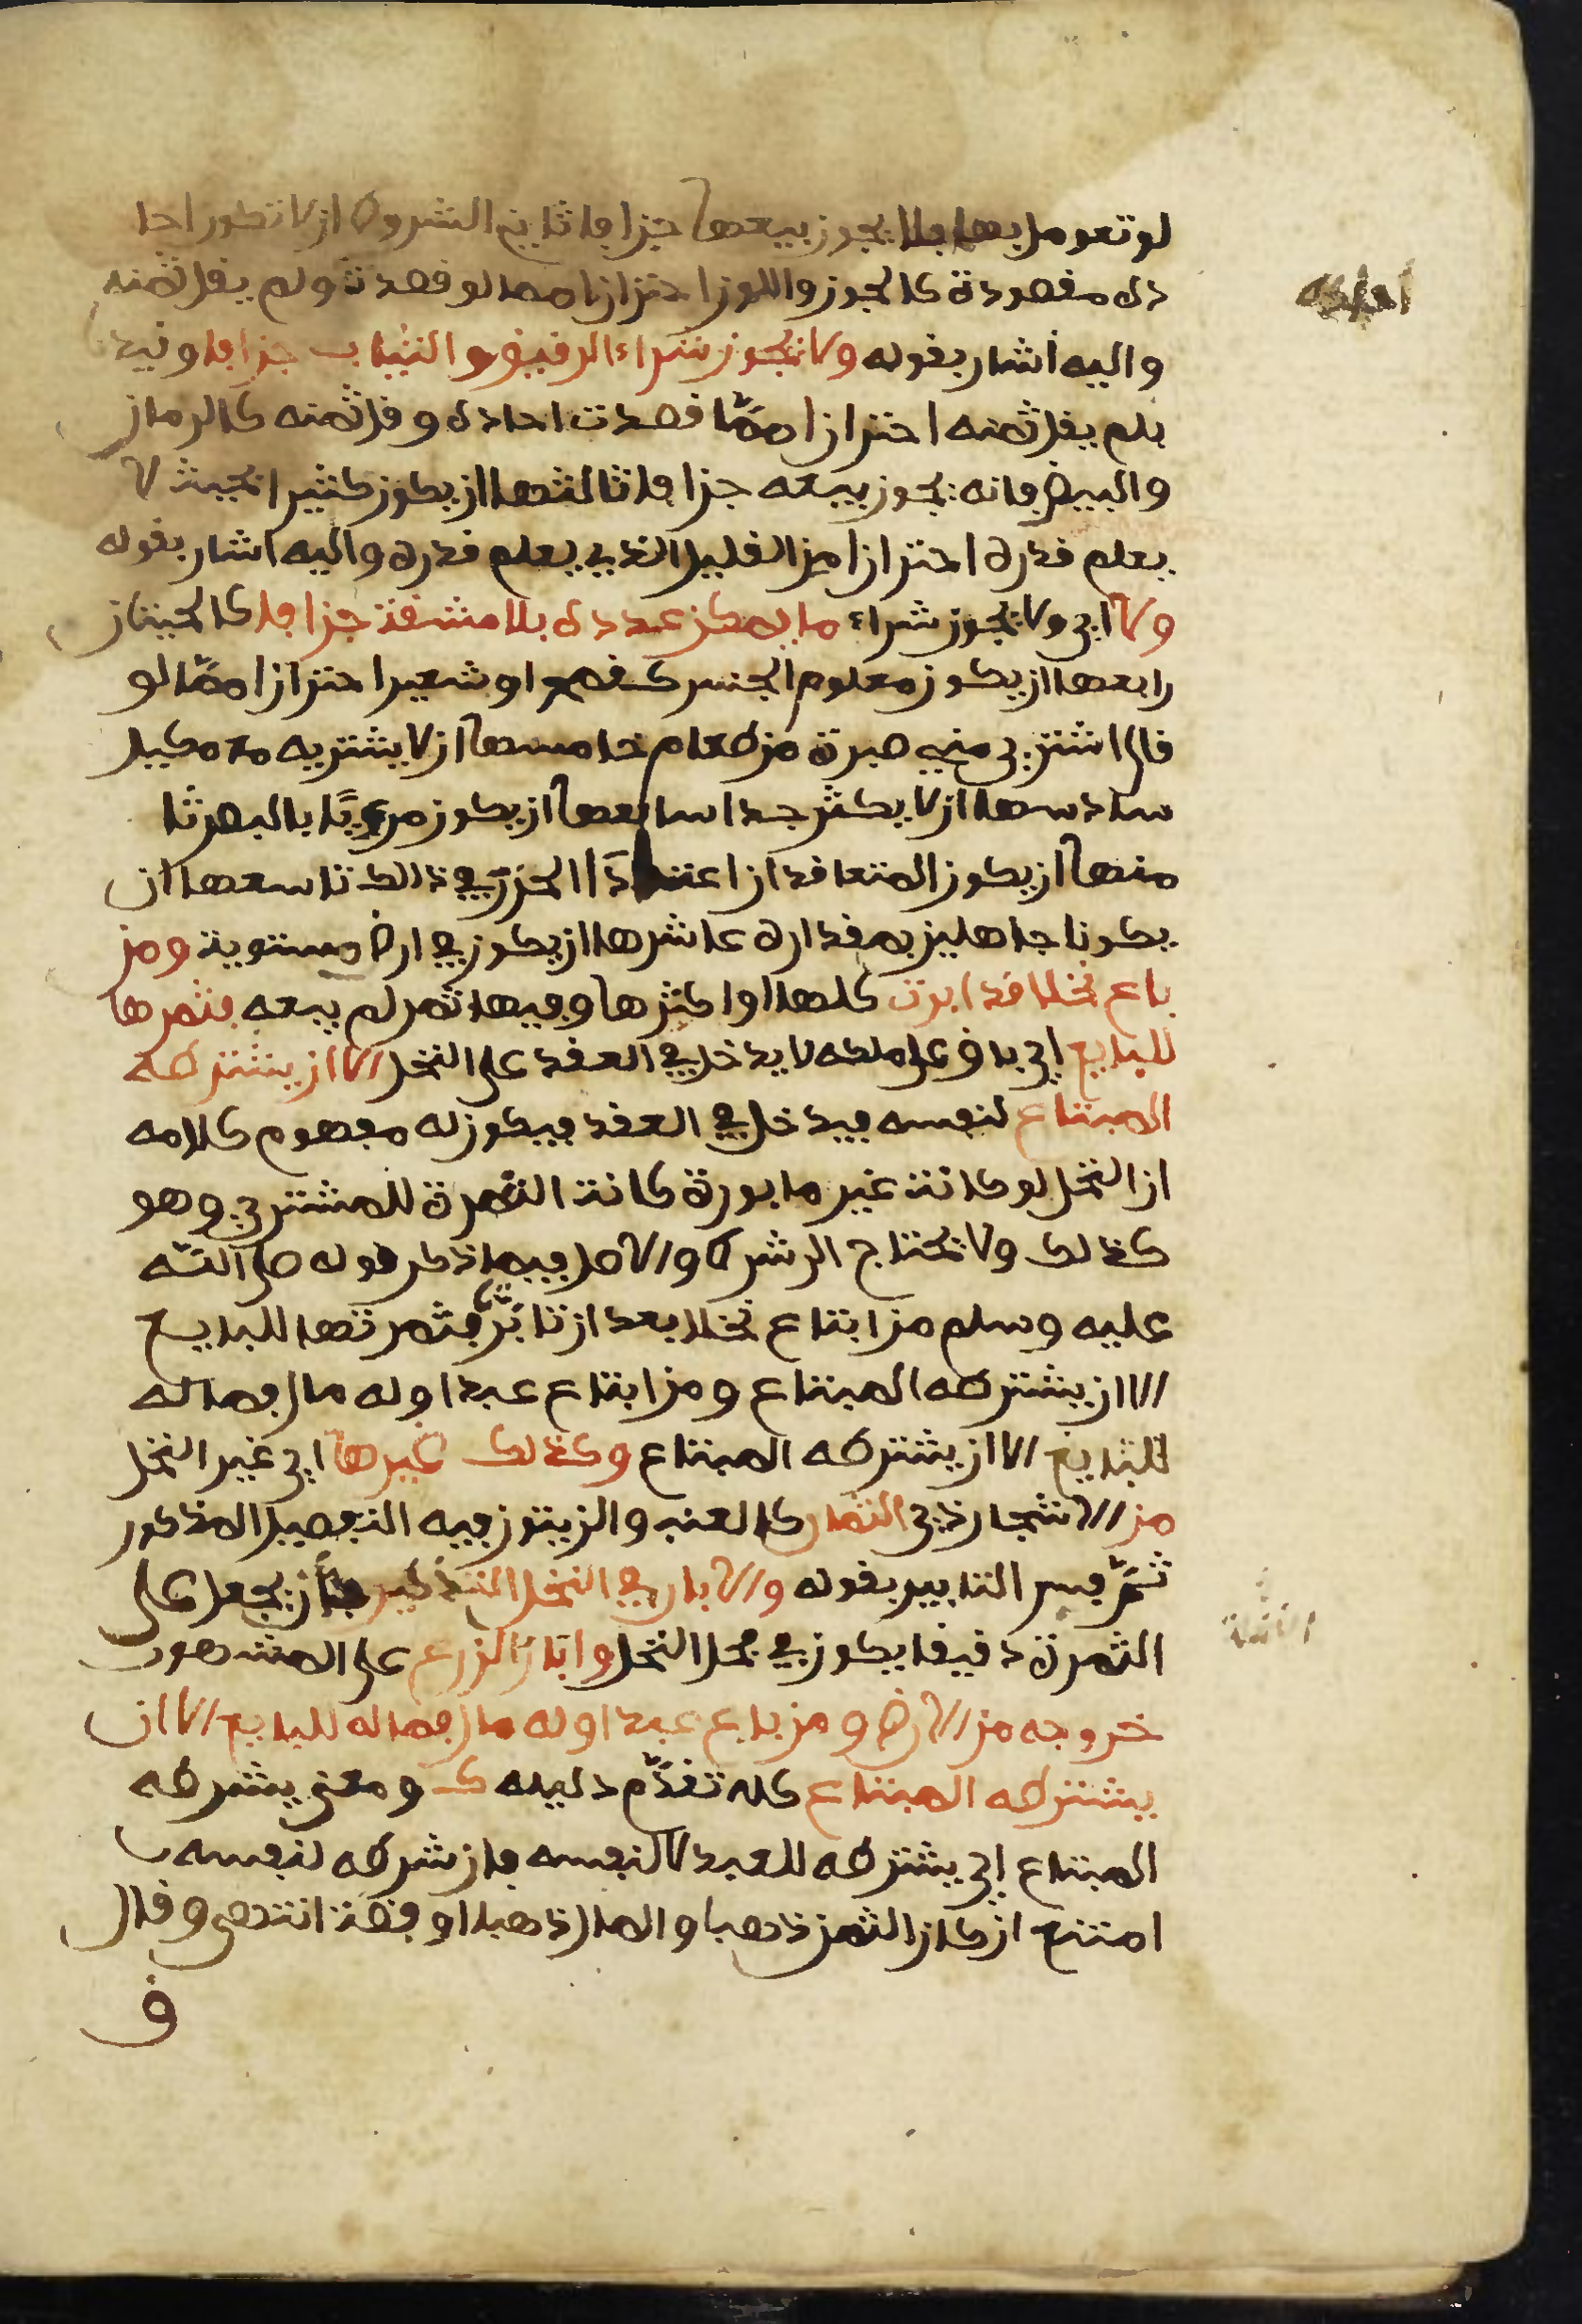 لو تعومل بها فلا يجوز بيعها جزافا ثاني الشروط ان لا تكون احا
ده مقصودة كالجوز واللوز احترازا مما لو قصدت ولم يقل ثمنه
واليه أشار بقوله ولا يجوز شراء الرقيق والثياب جزافا وقيد
بلم يقل ثمنه احترازا ممّا قصدت احاده وقل ثمنه كالرمان
والبيض فانه يجوز بيعه جزافا ثالثها ان يكون كثيرا بحيث لا
يعلم قدره احترازا من القليل الذي يعلم قدره واليه اشار بقوله
ولا اي ولا يجوز شراء ما يمكن عدده بلا مشقة جزافا كالحيتان
رابعها ان يكون معلوم الجنس كقمح او شعير احترازا ممّا لو
قال اشتري مني صبرة من طعام خامسها ان لا يشتريه مع مكيل
سادسها ان لا يكثر جدا سابعها ان يكون مرءيّا بالبصر ثا
منها ان يكون المتعاقدان اعتادا الحزر في ذالك تاسعها ان
يكونا جاهلين بمقداره عاشرها ان يكون في ارض مستوية ومن
باع نخلا قد ابرت كلها او اكثرها وفيها ثمر لم يبعه فثمرها
للبايع اي باق على ملكه لا يدخل في العقد على النخل الا ان يشترطه
المبتاع لنفسه فيدخل في العقد فيكون له مفهوم كلامه
ان النخل لو كانت غير مابورة كانت الثمرة للمشتري وهو
كذلك ولا يحتاج الى شرط والاصل فيما ذكر قوله صلى الله
عليه وسلم من ابتاع نخلا بعد ان تابّر فثمرتها للبايع
الا ان يشترطه المبتاع ومن ابتاع عبدا وله مال فماله
للبايع الا ان يشترطه المبتاع وكذلك غيرها اي غير النخل
من الاشجار ذي الثمار كالعنب والزيتون فيه التفصيل المذكور
ثمّ فسر التابير بقوله والابار في النخل التذكير بان يجعل على
الثمرة دقيقا يكون في فحل النخل وابار الزرع على المشهور
خروجه من الارض ومن باع عبدا وله مال فماله للبايع الا ان
يشترطه المبتاع كله تقدّم دليله ك ومعنى يشترطه
المبتاع اي يشترطه للعبد لا لنفسه فان شرطه لنفسه
امتنع ان كان الثمن ذهبا والمال ذهبا او فضة انتهى وقال
ق